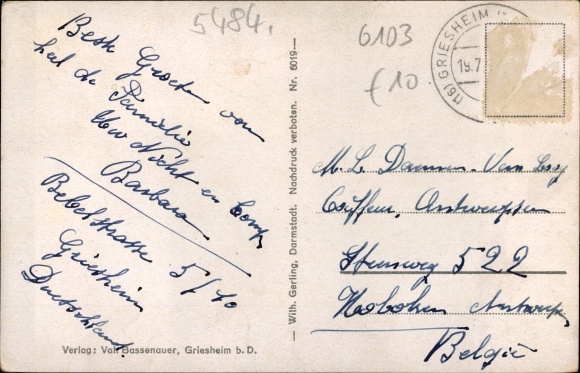 5484.
6103
£10
(16) GRIESHEIM
19.7
Beste Groeten van
heel de Familie
Uw Nicht en Comp
Barbara
Bebelstrasse 5/40
Griesheim
Duitschland.
Verlag: Val. Bassenauer, Griesheim b. D.
— Wilh. Gerling, Darmstadt. Nachdruck verboten. Nr. 6019 —
Coiffeur, Antwerpsen
Steenweg 522
Hoboken Antwerp
België